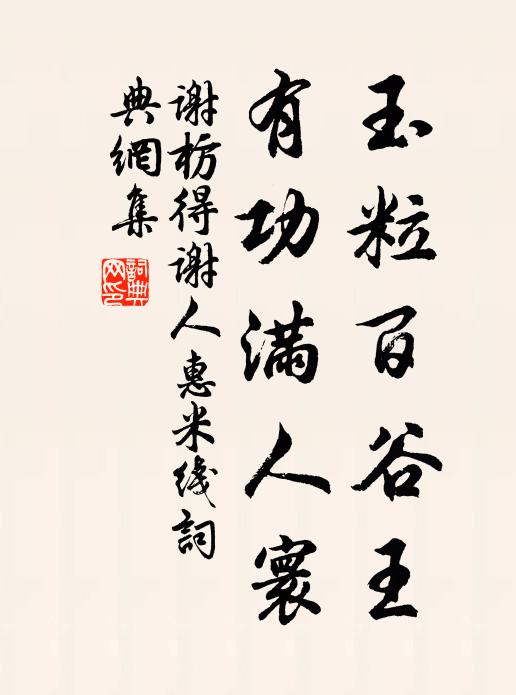 玉粒百谷王
有功满人寰
谢枋得谢人惠米线詞
典網集
詞典網印